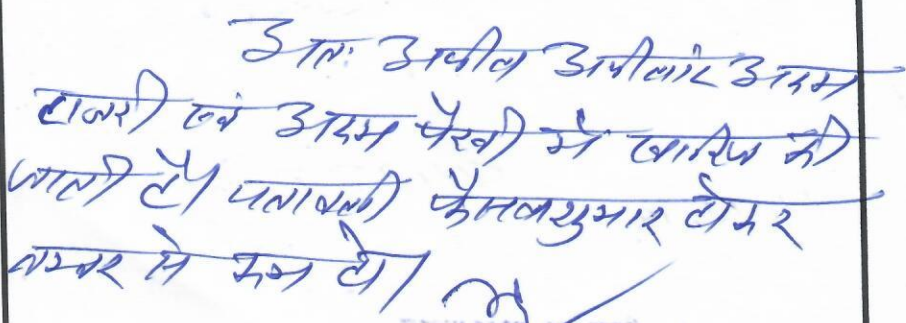 अतः अपील अपीलांट अदम
हाजरी एवं अदम पैरवी में खारिज की
जाती है। पत्रावली फैसलशुमार होकर
नम्बर से कम हो।